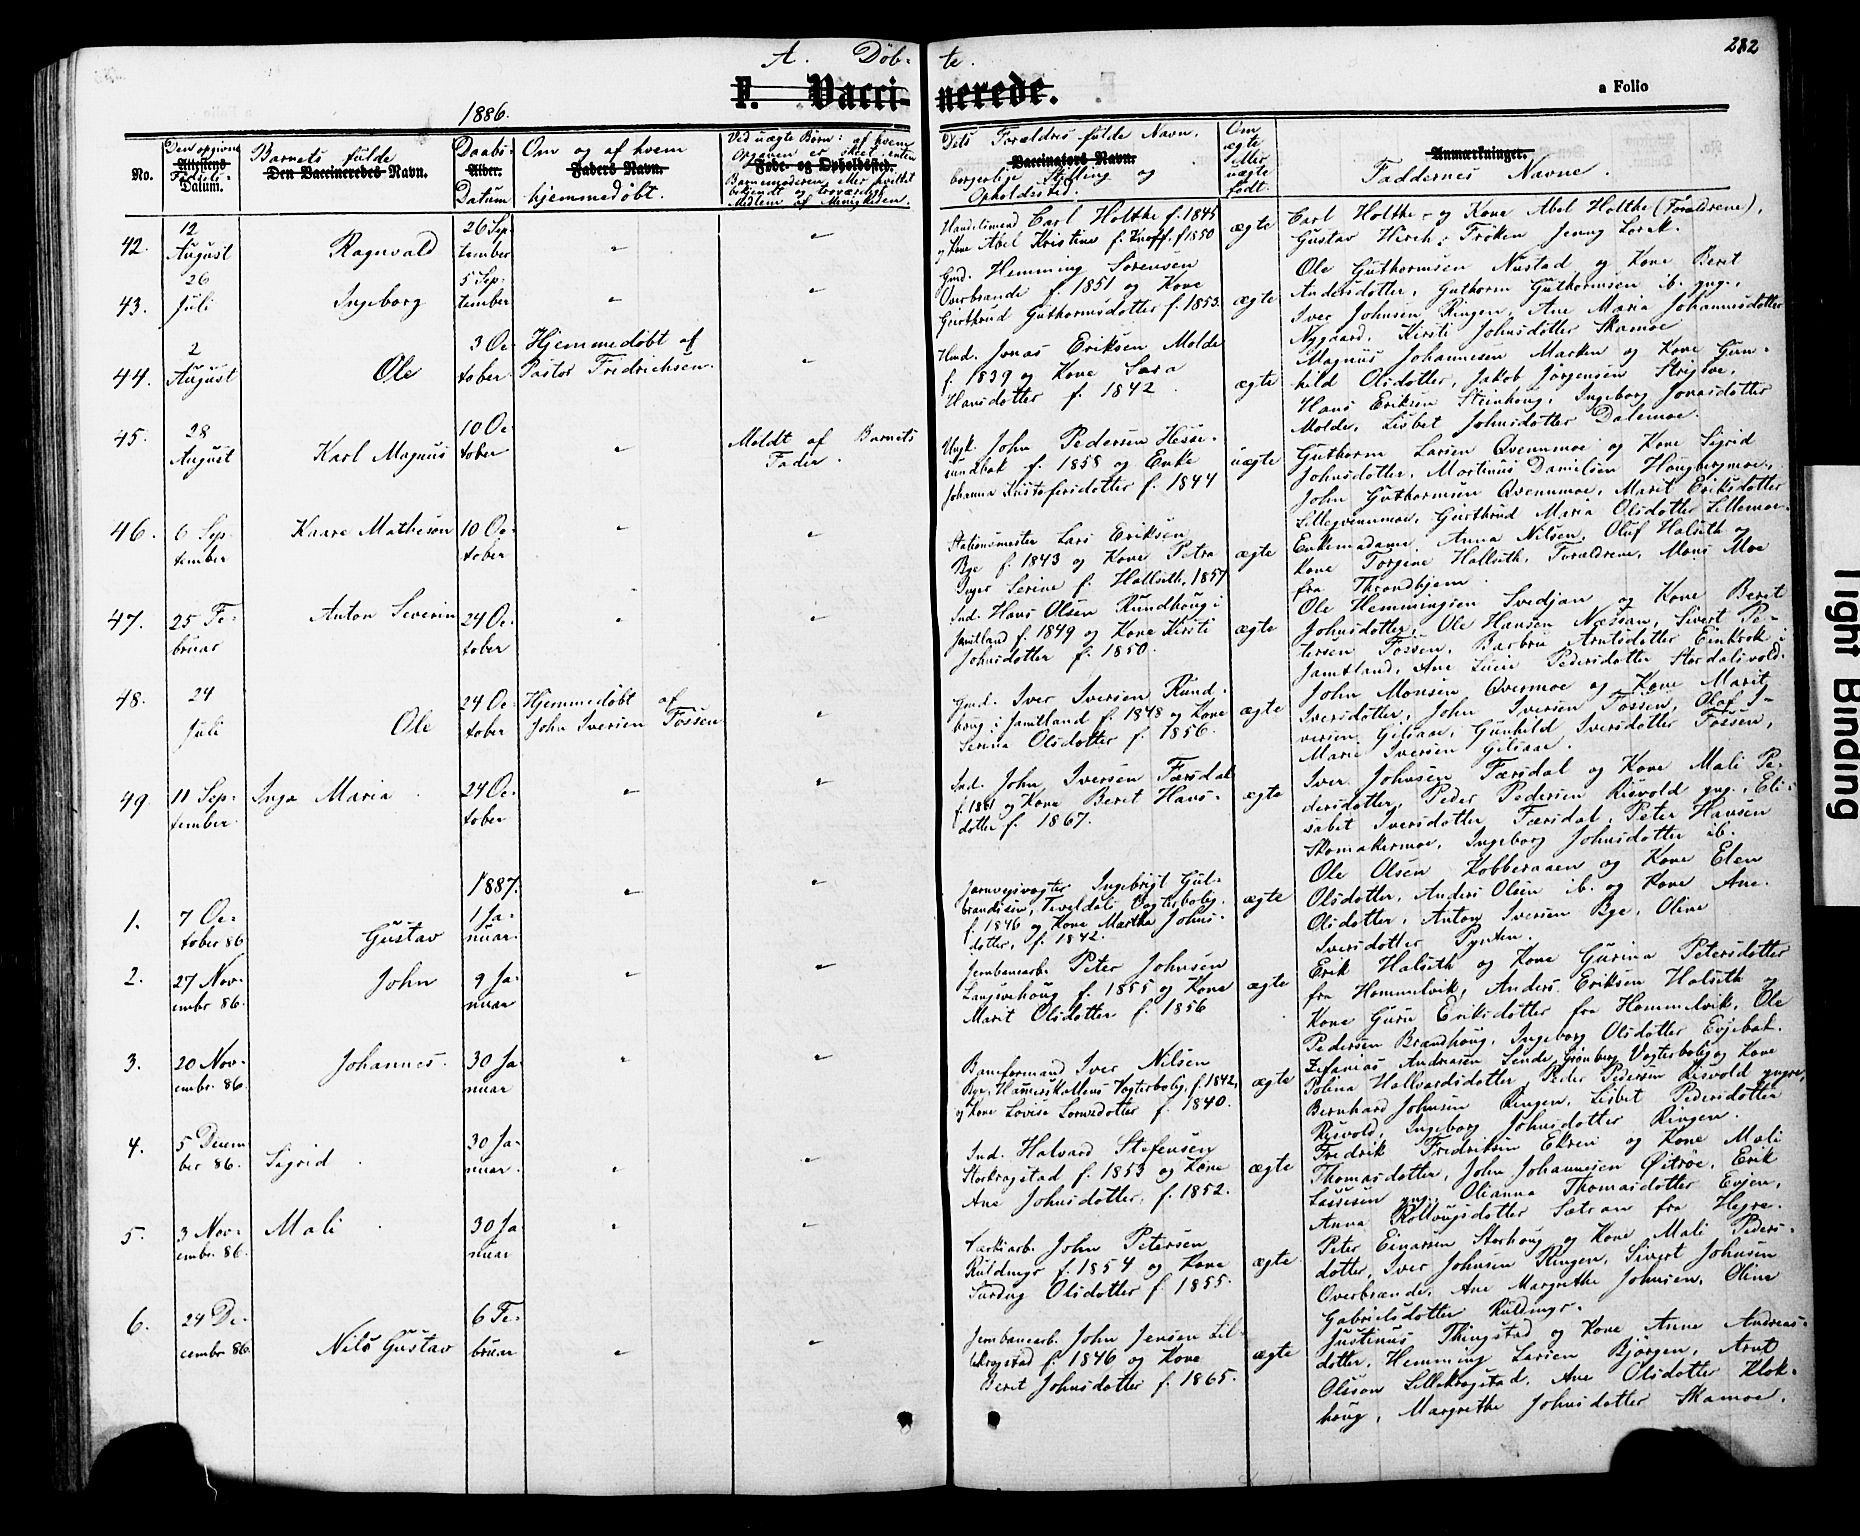 282
A. Døb- te.
F. Vacci- nerede. a Folio
1886.
No.
Den opgivne Attestens Fødsels- Datum.
Barnets fulde
Den Vaccineredes Navn.
Daabs-
Alder.
Datum
Om og af hvem
Faders Navn.
hjemmedøbt.
Ved uægte Børn: af hvem
Opgaven er skeet, enten
Føde- og Opholdssted.
Barnemoderen eller hvilket
bekjendt og troværdigt
Medlem af Menigheden.
Dets Forældres fulde Navn,
Vaccinators Navn.
borgerlige Stilling og
Opholdssted.
Om ægte eller uægte født.
Anmærkninger.
Faddernes Navne.
42. 12 August Ragnvald 26 September
Handelsmand Carl Holthe f. 1845
og Kone Abel Kristine f. Knoff f. 1850
ægte
Carl Holthe og Kone Abel Holthe (Forældrene),
Gustav Hirch, Frøken Jenny Lorck.
43. 26 Juli Ingeborg 5 September
Gmd. Hemming Sørensen
Overbrande f. 1851 og Kone
Gjertrud Guthormsdotter f. 1853.
ægte
Ole Guthormsen Nustad og Kone Beret
Andersdotter, Guthorm Guthormsen ib. yng.,
Iver Johnsen Ringen, Ane Maria Johannesdotter
Nygaard, Kirsti Johnsdotter Skamoe
44. 2 August Ole 3 October
Hjemmedøbt af
Pastor Fredrichsen.
Hmd. Jonas Eriksen Molde
f. 1839 og Kone Sara
Hansdotter f. 1842
ægte
Magnus Johannesen Marken og Kone Gun-
hild Olsdotter, Jakob Jørgensen
Hans Eriksen Steinhoug, Ingeborg Jonasdotter
Molde, Lisbet Johnsdotter Dalemoe.
45. 28 August Karl Magnus 10 October
Meldt af Barnets
Fader.
Ungk. John Pedersen Hesse-
lundbak f. 1858 og Enke
Johanna Kristofersdotter f. 1844
uægte
Guthorm Larsen Qvenmoe og Kone Sigrid
Johnsdotter, Martinus Danielsen Hougbergmoe,
John Guthormsen Qvenmoe, Marit Eriksdotter
Lilleqvenmoe, Gjertrud Maria Olsdotter Lillemoe.
46. 6 September Kaare Mathison 10 October
Stationsmester Lars Eriksen
Bye f. 1843 og Kone Petra
Inger Serine f. Hallseth, 1857
ægte
Enkemadame Anna Nilsen, Oluf Halseth og
Kone Torgine Hallseth, Forældrene, Mons Moe
fra Throndhjem.
47. 25 Februar Anton Severin 24 October
Ind. Hans Olsen Rundhoug i
Jamtland f. 1849 og Kone Kirsti
Johnsdotter f. 1850.
ægte
Ole Hemmingsen Svedjan og Kone Beret
Johnsdotter, Ole Hansen Næssan, Sivert Pe-
tersen Fossen, Barbru Arntsdotter Einkrok i
Jamtland, Ane Lucie Pedersdotter Stordalsvold.
48. 24 Juli Ole 24 October
Hjemmedøbt af
John Iversen Fossen
Gmd. Iver Iversen Rund-
houg i Jamtland f. 1848 og Kone
Serina Olsdotter f. 1856.
ægte
John Monsen Qvermoe og Kone Marit
Iversdotter, John Iversen Fossen, Olof I-
versen Gilsaae, Gunhild Iversdotter Fossen,
Marie Iversen Gilsaae.
49. 11 September Inga Maria 24 October
Ind. John Iversen Færsdal
f. 1861 og Kone Beret Hans-
dotter f. 1867.
ægte
Iver Johnsen Færsdal og Kone Mali Pe-
dersdotter, Peder Pedersen Risvold yng., Eli-
sabet Iversdotter Færsdal, Peter Hansen
Skomakermoe, Ingeborg Johnsdotter ib.
1887.
1. 7 October 86 Gustav 1 Januar
Jernveisvogter Ingebrigt Gul-
brandsen, Teveldals Vogterbolig,
f. 1846 og Kone Marthe Johns-
dotter, f. 1842.
ægte
Ole Olsen Kobberaaen og Kone Elen
Olsdotter, Anders Olsen ib. og Kone Ane
Olsdotter, Anton Iversen Bye, Oline
Iversdotter Pynten.
2. 27 Novembr 86. John 9 Januar
Jernbanearb. Peter Johnsen
Langvehoug f. 1855 og Kone
Marit Olsdotter f. 1856
ægte
Erik Halseth og Kone Gurina Petersdotter
fra Hommelvik, Anders Eriksen Halseth og
Kone Guru Eriksdotter fra Hommelvik, Ole
Pedersen Brandhoug, Ingeborg Olsdotter Evjebak.
3. 20 Novembr. 86. Johannes. 30 Januar
Baneformand Iver Nilsen
Bye, Hammerskallens Vogterbolig, f. 1842,
og Kone Lovise Lornsdotter f. 1840.
ægte
Zefanias Andreasen Sende, Grønberg Vogterbolig og Kone
Polina Hallvardsdotter, Peder Pedersen Risvold yngre,
Bernhard Johnsen Ringen, Lisbet Pedersdotter
Risvold, Ingeborg Johnsdotter Ringen.
4. 5 December 86. Sigrid 30 Januar.
Ind. Halvard Stefensen
Storkrogstad f. 1853 og Kone
Ane Johnsdotter, f. 1852.
ægte
Fredrik Fredriksen Ekren og Kone Mali
Thomasdotter, John Johannesen Øitrøe, Erik
Lassesen yng., Olianna Thomasdotter Evjen,
Anna Rollougsdotter Sætran fra Hegre.
5. 3 Novembr. 86. Mali 30 Januar
Værksarb. John Petersen
Kuldings f. 1854 og Kone
Olsdotter f. 1855.
ægte
Peter Einarsen Storhoug og Kone Mali Peders-
dotter, Iver Johnsen Ringen, Sivert Johnsen
Overbrande, Ane Margrethe Johnsen, Oline
Gabrielsdotter Kuldings.
6. 24 December 86. Nils Gustav 6 Februar
Jernbanearb. John Jensen Lil-
lekrogstad f. 1846 og Kone
Beret Johnsdotter f. 1865.
ægte
Justinus Thingstad og Kone Anne Andreas-
dotter, Hemming Larsen Bjørgen, Arnt
Olsson Lillekrogstad, Ane Olsdotter Klok-
houg, Margrethe Johnsdotter Skamoe.
Tight Binding